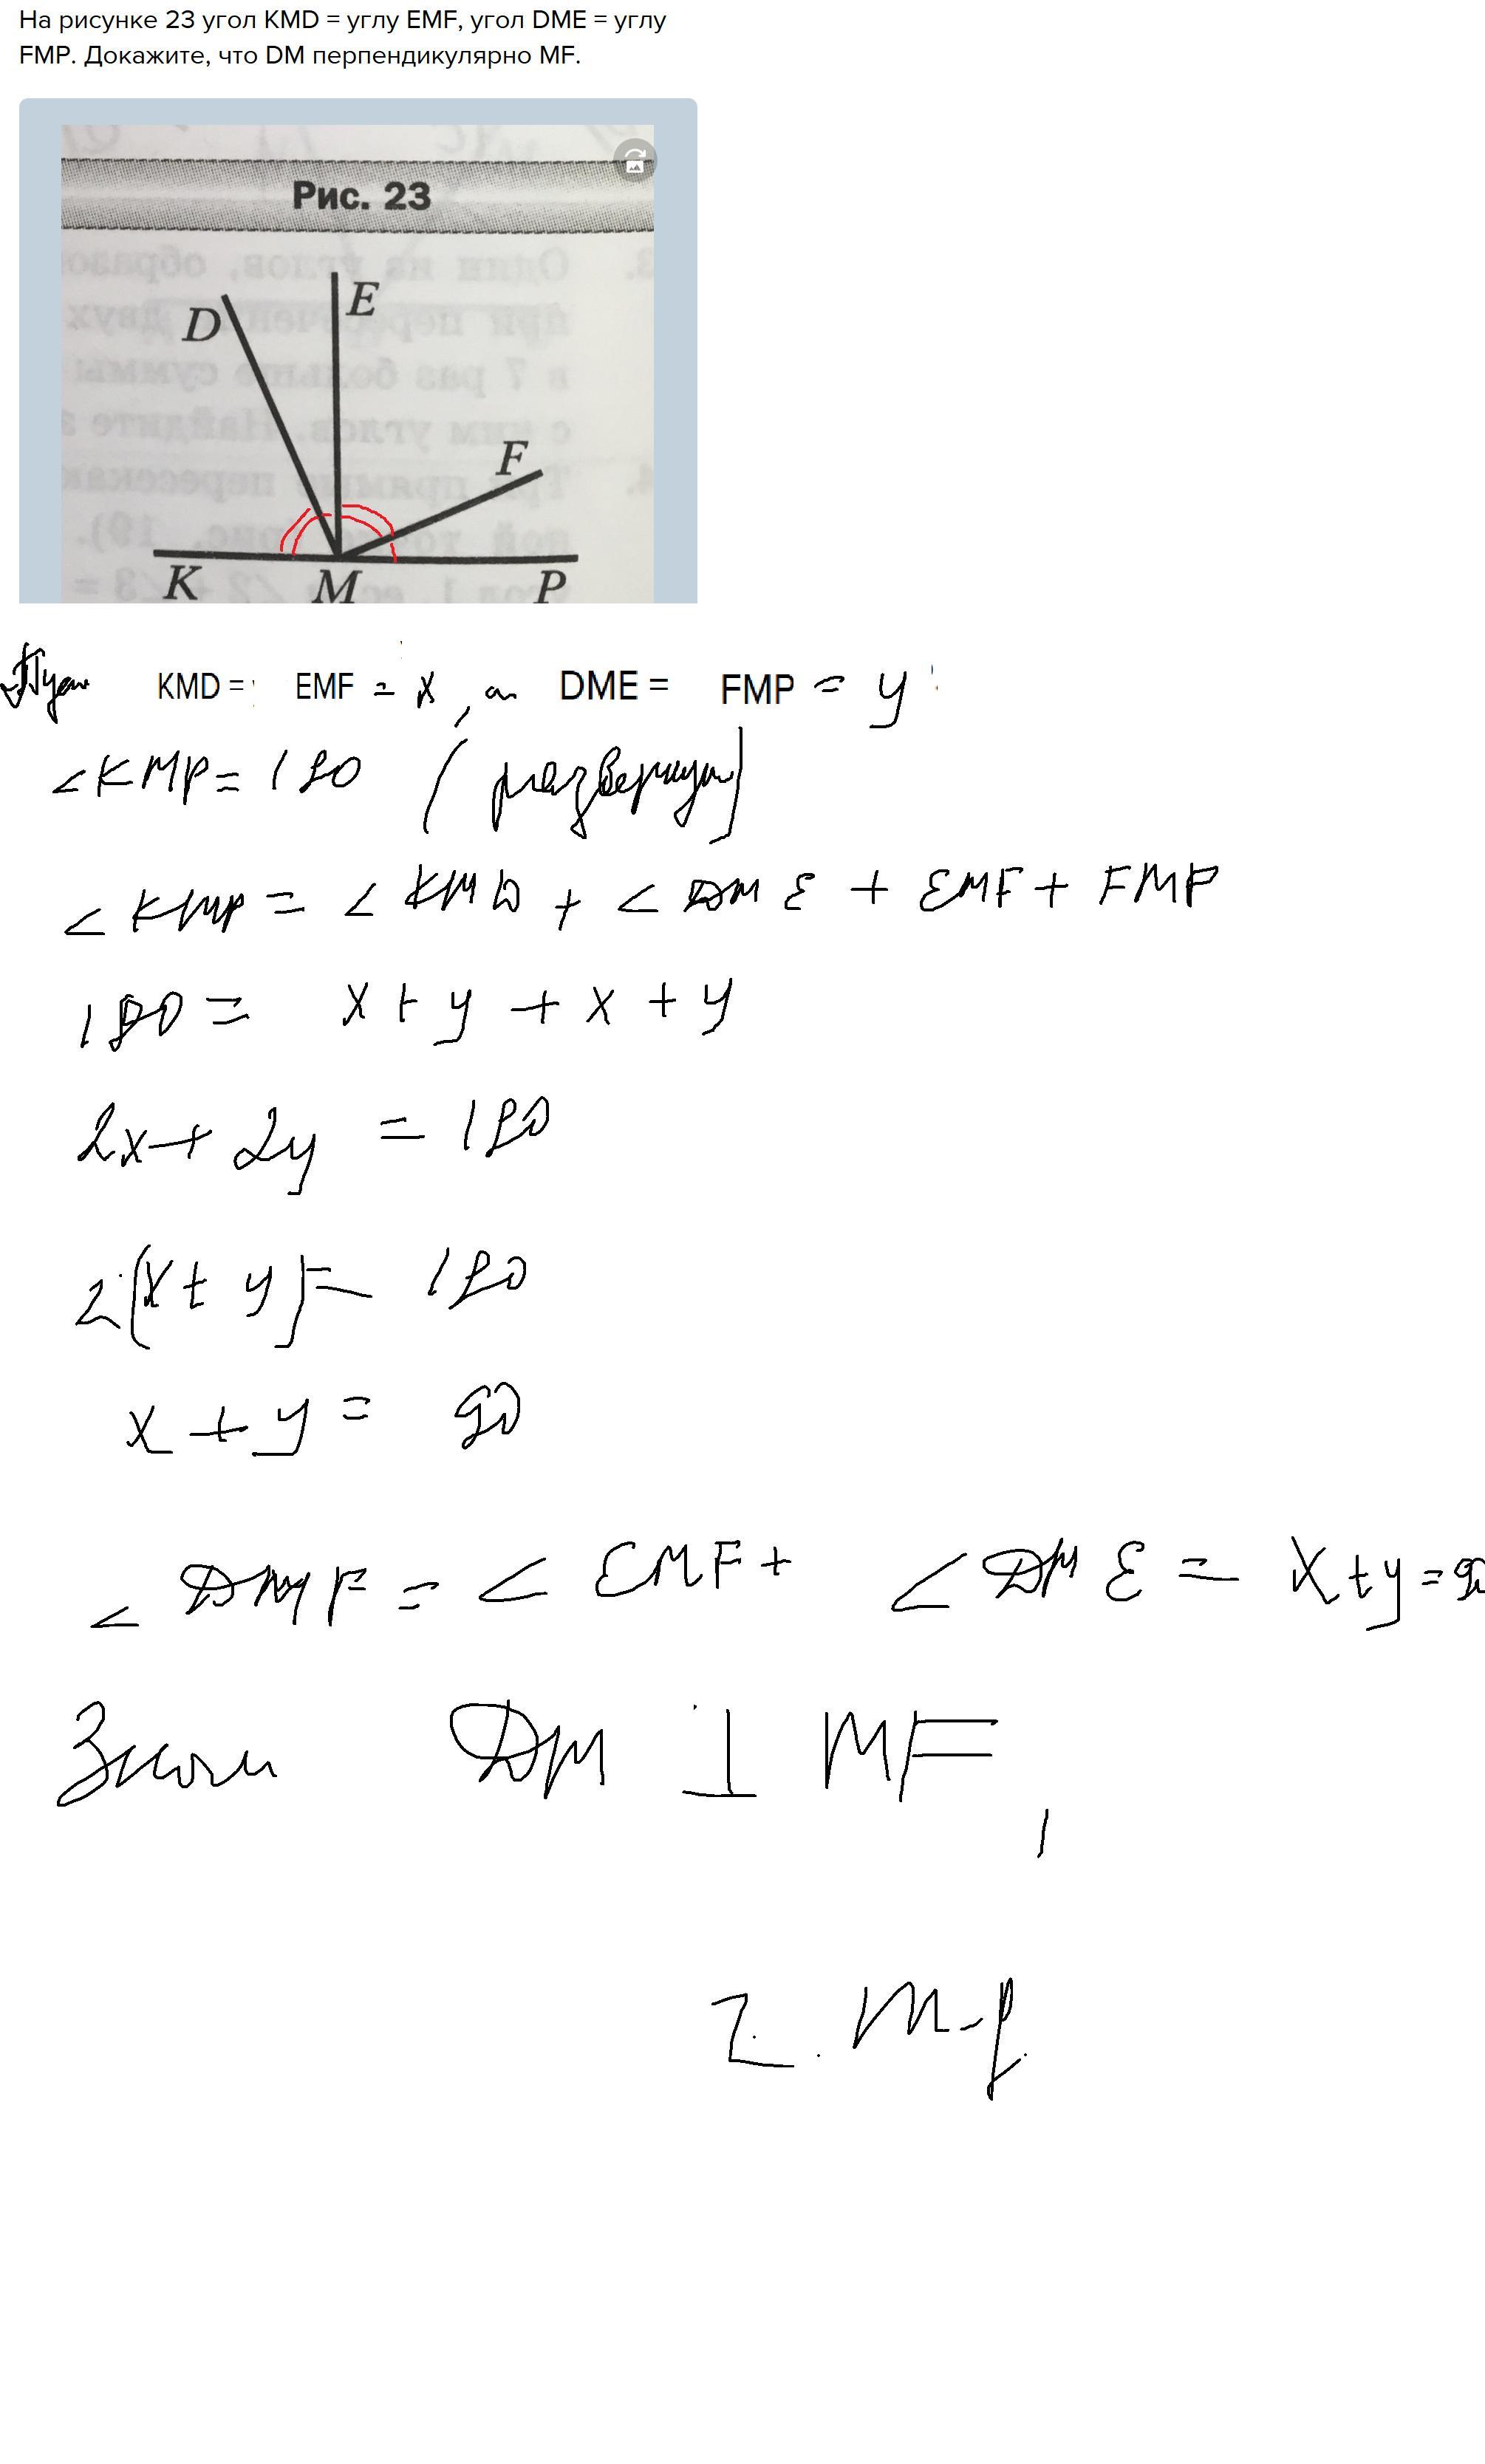 На рисунке 23 угол KMD = углу EMF, угол DME = углу
FMP. Докажите, что DM перпендикулярно MF.
Рис. 23
D
E
F
K
M
P
KMD = EMF = x, а DME = FMP = y
∠KMP = 180 (развернутый)
∠KMP = ∠KMD + ∠DME + EMF + FMP
180 = x + y + x + y
2x + 2y = 180
2(x + y) = 180
x + y = 90
∠DMF = ∠EMF + ∠DME = x + y = 90
Значит DM ⊥ MF,